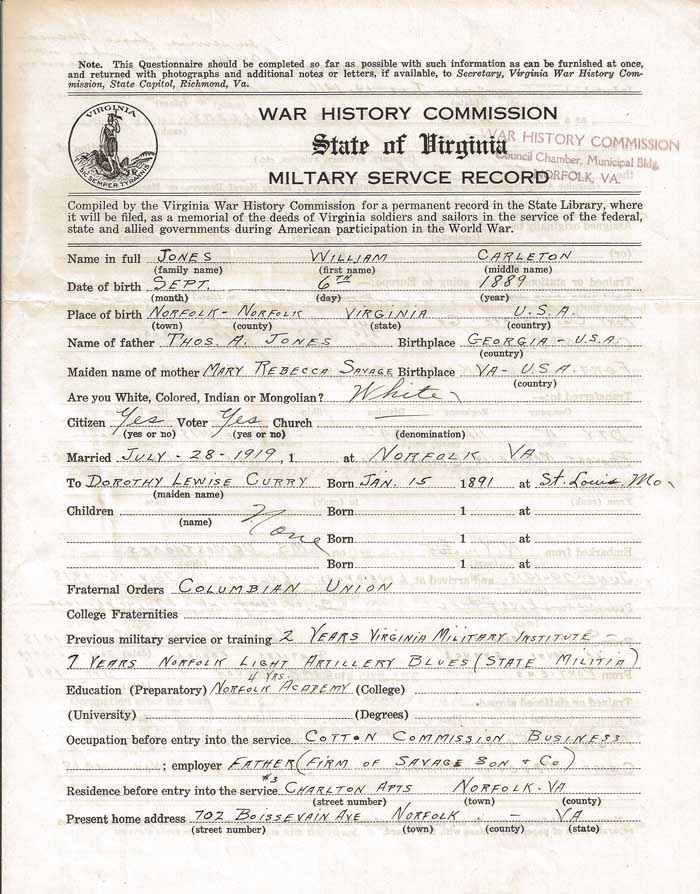 Note. This Questionnaire should be completed so far as possible with such information as can be furnished at once,
and returned with photographs and additional notes or letters, if available, to Secretary, Virginia War History Com-
mission, State Capitol, Richmond, Va.
VIRGINIA
SIC SEMPER TYRANNIS
WAR HISTORY COMMISSION
State of Virginia
MILTARY SERVCE RECORD
WAR HISTORY COMMISSION
Council Chamber, Municipal Bldg.
NORFOLK, VA.
Compiled by the Virginia War History Commission for a permanent record in the State Library, where
it will be filed, as a memorial of the deeds of Virginia soldiers and sailors in the service of the federal,
state and allied governments during American participation in the World War.
Name in full JONES WILLIAM CARLETON
(family name) (first name) (middle name)
Date of birth SEPT. 6TH 1889
(month) (day) (year)
Place of birth NORFOLK - NORFOLK VIRGINIA U.S.A.
(town) (county) (state) (country)
Name of father THOS. A. JONES Birthplace GEORGIA - U.S.A.
(country)
Maiden name of mother MARY REBECCA SAVAGE Birthplace VA - U.S.A
(country)
Are you White, Colored, Indian or Mongolian? White
Citizen Yes Voter Yes Church —
(yes or no) (yes or no) (denomination)
Married JULY - 28 - 1919, 1 at NORFOLK VA
To DOROTHY LEWISE CURRY Born JAN. 15 1891 at St. Louis, Mo
(maiden name)
Children None Born 1 at
(name)
Born 1 at
Born 1 at
Fraternal Orders COLUMBIAN UNION
College Fraternities
Previous military service or training 2 YEARS VIRGINIA MILITARY INSTITUTE -
7 YEARS NORFOLK LIGHT ARTILLERY BLUES (STATE MILITIA)
4 YRS.
Education (Preparatory) NORFOLK ACADEMY (College)
(University) (Degrees)
Occupation before entry into the service COTTON COMMISSION BUSINESS
; employer FATHER (FIRM OF SAVAGE SON & CO)
Residence before entry into the service #3 CHARLTON APTS NORFOLK - VA
(street number) (town) (county)
Present home address 702 BOISSEVAIN AVE NORFOLK - VA
(street number) (town) (county) (state)